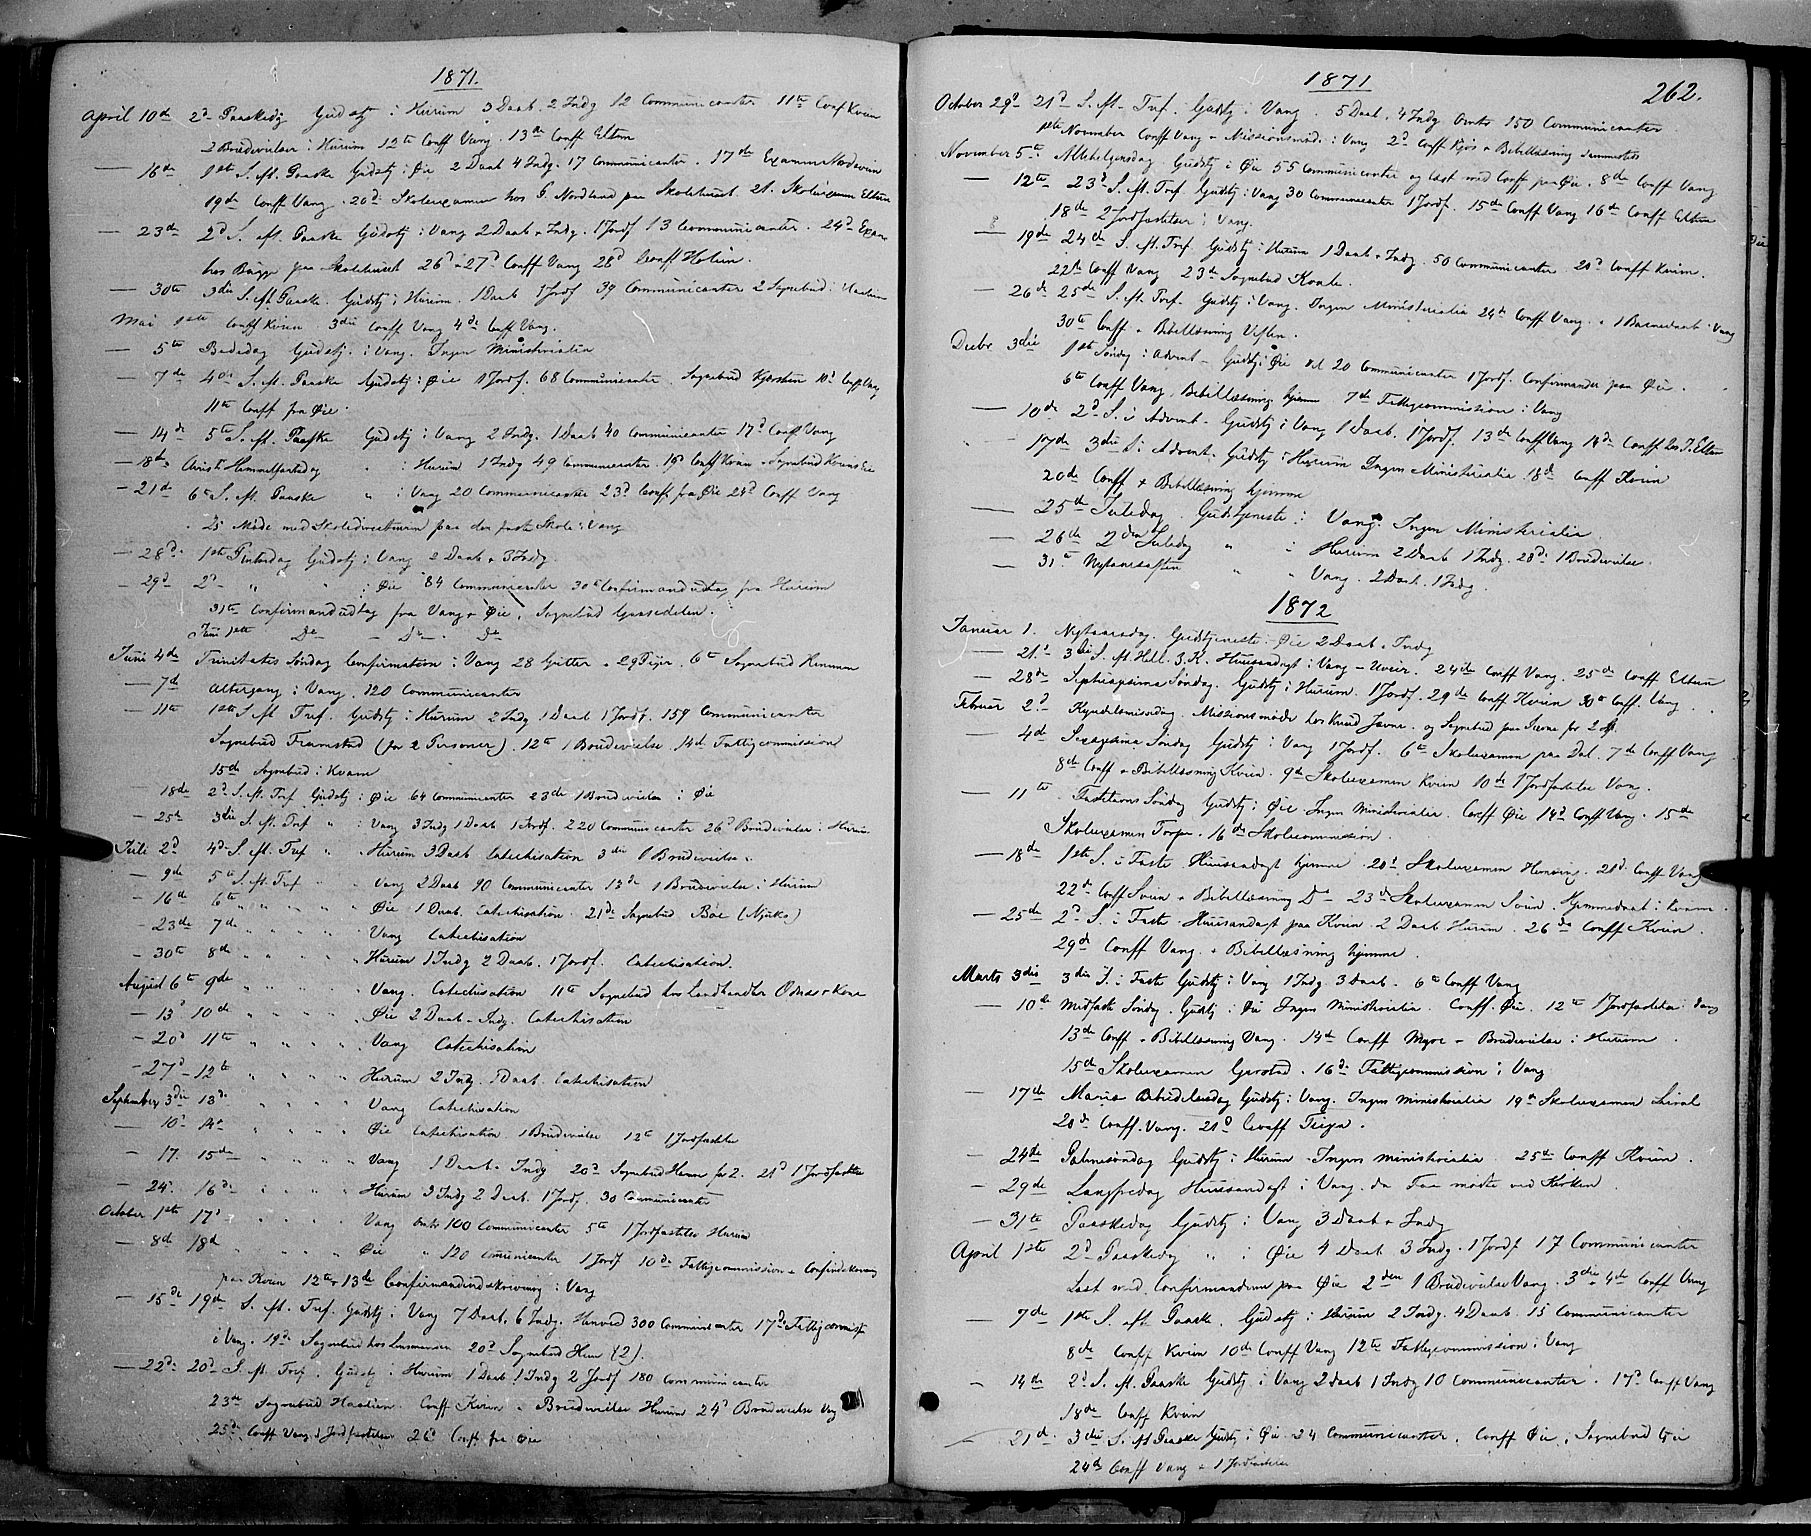 1871.
April 10de 2d Paaskedag Gudstj i Hurum 3 Daab 2 Indg 12 Communicanter 11te Conf Kvien
2 Brudevielser i Hurum 12te Conff Vang. 13de Conff Eltun
— 16de 1ste S. Aft. Paaske Gudstj i Øie 2 Daab 4 Indg. 17 Communicanter. 17de Examen Nordsvin
19de Conff Vang. 20de Skolexamen hos G. Nordland paa Skolehuset 21. Skolexamen Eltun
— 23de 2d S. Aft. Paaske Gudstj i Vang 2 Daab + Indg. 1 Jordf 13 Communicanter. 24de Exam
hos Bugge paa Skolehuset 26d + 27d Conff Vang 28d Conff Holien.
— 30te 3die S. Aft. Paaske. Gudstj i Hurum. 1 Daab 1 Jordf 39 Communicanter 2 Sognebud i
Mai 1ste Conff Kvien. 3die Conff Vang 4de Conff Vang.
— 5te Bededag Gudstj. i Vang. Ingen Ministerialia
— 7de 4de S. Aft. Paaske Gudstj i Øie 1 Jordf. 68 Communicanter. Sognebud Kjerstein 10d Conff Vang
11te Conff fra Øie.
— 14de 5te S. Aft. Paaske Gudstj i Vang 2 Indg. 1 Daab 40 Communicanter 17d Conff Vang
— 18de Christi Himmelfartsdag " i Hurum 1 Indg 49 Communicanter. 19d Conff Kvien + Sognebud Kviens Eie
— 21de 6te S. Aft. Paaske " i Vang 20 Communicanter 23d Conf. fra Øie 24d Conff Vang
25 Møde med Skoledirecteuren paa den faste Skole i Vang
— 28d 1ste Pintsedag Gudstj i Vang 2 Daab + 3 Indg.
— 29d 2d " " i Øie 84 Communicanter 30te Confirmandudtag fra Hurum
31te Confirmandudtag fra Vang + Øie. Sognebud Gaasedelen.
Juni 1ste Do — Do — Do
Juni 4de Trinitatis Søndag Confirmation i Vang 28 Gutter + 29 Piger. 6te Sognebud
— 7d Altergang i Vang. 120 Communicanter
— 11te 1ste S. Aft Tref. Gudstj i Hurum 2 Indg 1 Daab 1 Jordf. 159 Communicanter
Sognebud Framstad (for 2 Personer). 12te 1 Brudevielse. 14d Fattigcommission
15de Sognebud i Kvam
— 18de 2d S. Aft. Tref Gudstj i Øie 64 Communicanter 23de 1 Brudevielse i Øie
— 25de 3die S. Aft. Tref " i Vang 3 Indg 1 Daab 1 Jordf. 220 Communicanter 26d Brudevielse i Hurum
Juli 2d 4de S. Aft. Tref " " Hurum 3 Daab Catechisation 3die 1 Brudevielse.
— 9de 5te S. Aft. Tref " " Vang 2 Daab 90 Communicanter 13de 1 Brudevielse i Hurum
— 16de 6te " " " " Øie 1 Daab. Catechisation. 21de Sognebud Bøe (Njuks)
— 23de 7de " " " " Vang Catechisation
— 30te 8de " " " " Hurum 1 Indg 2 Daab. 1 Jordf. Catechisation.
August 6te 9de " " " " Vang. Catechisation 11te Sognebud hos Landhandler Odnes + Kone
— 13d 10de " " " " Øie 2 Daab + Indg. Catechisation
— 20d 11te " " " " Vang Catechisation
— 27d 12te " " " " Hurum 2 Indg. 1 Daab. Catechisation
September 3die 13de " " " " Vang Catechisation
— 10de 14de " " " " Øie Catechisation. 1 Brudevielse 12te 1 Jordfæstelse
— 17. 15de " " " " Vang 1 Daab + Indg 20de Sognebud for 2. 21d 1 Jordfæstelse
— 24. 16de " " " " Hurum 3 Indg 2 Daab. 1 Jordf. 30 Communicanter
October 1ste 17d " " " " Vang omtr 100 Communicanter 5te 1 Jordfæstelse Hurum
— 8d 18d " " " " Øie " 120 Communicanter 1 Jordf 10de Fattigcommission + Confirdskrivning
paa Kvien 12te + 13de Confirmandindskrivning i Vang
— 15de 19de S. Aft. Tref. Gudstj i Vang 7 Daab, 6 Indg. Henved 300 Communicanter 17de Fattigcommiss
i Vang. 19de Sognebud hos Lensmanden 20d Sognebud (2).
— 22de 20d S. Aft Tref. Gudstj i Hurum 1 Daab 1 Indg 2 Jordf 180 Communicanter
23de Sognebud Haalien. Conff Kvien + Brudevielse Hurum 24d Brudevielse Vang
25de Conff Vang + Jordfæstelse 26d Conff fra Øie
1871
262.
October 29d 21d S. Aft. Tref. Gudstj i Vang. 5 Daab, 4 Indg Omtr 150 Communicanter
1ste November Conff Vang + Missionsmøde i Vang 2d Conff Kjøs + Bibellæsning sammesteds
November 5te Allehelgensdag. Gudstj i Øie 55 Communicanter og læst med Conff paa Øie. 8de Conff Vang
— 12te 23d S. Aft. Tref. Gudstj i Vang 30 Communicanter 1 Jordf. 15de Conff Vang 16de Conff Eltun
18de 2 Jordfæstelser i Vang.
— 19de 24de S. Aft. Tref. Gudstj i Hurum 1 Daab + Indg. 50 Communicanter 20d Conff Kvien.
22de Conff Vang 23de Sognebud Kvale.
— 26de 25de S. Aft. Tref. Gudstj i Vang. Ingen Ministerialia 24de Conff Vang. + 1 Barnedaab i Vang
30te Conff + Bibellæsning Veflen.
Decbr. 3die 1ste Søndag i Advent — Gudstj i Øie 20 Communicanter 1 Jordf. Confirmander paa Øie.
6te Conff Vang, Bibellæsning hjemme 7de Fattigcommission i Vang
— 10de 2d S. i Advent — Gudstj i Vang 1 Daab. 1 Jordf. 13de Conff Vang 14de Conff hos T. Eltun
— 17de 3die S. i Advent. Gudstj i Hurum Ingen Ministerialia. 18de Conff Kvien
20de Conff + Bibellæsning hjemme
— 25de Juledag. Gudstjeneste i Vang. Ingen Ministerialia.
— 26de 2den Juledag " i Hurum 2 Daab 1 Indg. 28de 1 Brudevielse.
— 31te Nytaarsaften " " Vang. 2 Daab. 1 Indg.
1872
Januar 1. Nytaarsdag. Gudstjeneste i Øie 2 Daab + Indg
— 21d 3die S. Aft Hell. 3 K. Huusandagt i Vang — Uveir. 24de Conff Vang. 25de Conff Eltun
— 28de Septuagesima Søndag. Gudstj i Hurum. 1 Jordf. 29de Conff Kvien 30te Conff. Vang
Februar 2d Kyndelsmissedag. Missionsmøde hos Knud Javne. og Sognebud paa for 2
— 4de Sexagesima Søndag Gudstj i Vang 1 Jordf. 6te Skolexamen paa Dal. 7de Conff Vang
8de Conff + Bibellæsning Kvien. 9de Skolexamen Kvien 10de 1 Jordfæstelse Vang.
— 11te Fastelavns Søndag Gudstj i Øie Ingen Ministerialia. Conff Øie 14d Conff Vang. 15de
Skolexamen Torpe. 16de Skolecommission.
— 18de 1ste S. i Faste Huusandagt hjemme. 20d Skolexamen Hensing. 21d Conff Vang
22de Conff Sven + Bibellæsning Do — 23de Skolexamen Sven. Hjemmedaab i Kvam.
— 25de 2d S. i Faste. Huusandagt paa Kvien. 2 Daab Hurum. 26de Conff Kvien.
29de Conff Vang. + Bibellæsning hjemme.
Marts 3die 3die S. i Faste Gudstj i Vang 1 Indg 3 Daab. 6te Conff Vang
— 10de Midfaste Søndag. Gudstj. i Øie Ingen Ministerialia. Conff. Øie. 12te 1 Jordfæstelse i Vang
13de Conff + Bibellæsning Vang. 14de Conff Myre + Brudevielse i Hurum.
15de Skolexamen Gjerstad. 16de Fattigcommission i Vang
— 17de Mariæ Bebudelsesdag Gudstj i Vang. Ingen Ministerialia 19de Skolexamen
20de Conff. Vang. 21d Conff Teigen.
— 24de Palmesøndag Gudstj i Hurum. Ingen Ministerialia. 25de Conff Kvien.
— 29de Langfredag Huusandagt i Vang, da Faa mødte ved Kirken.
— 31te Paaskedag Gudstj i Vang 3 Daab + Indg
April 1ste 2d Paaskedag " i Øie 4 Daab 3 Indg. 1 Jordf 17 Communicanter
Læst med Confirmanderne paa Øie 2den 1 Brudevielse Vang. 3die 4de Conff Vang
— 7de 1ste S. Aft Paaske. Gudstj i Hurum 2 Indg. 4 Daab. 15 Communicanter
8de Conff Kvien 10de Conff Vang 12te Fattigcommission i Vang
— 14de 2d S. Aft. Paaske Gudstj i Vang 2 Daab 1 Indg 10 Communicanter. 17d Conff Vang
18de Conff Kvien
— 21de 3die S. Aft Paaske Gudstj i Øie. 24 Communicanter. Conff Øie. Sognebud Øie
24de Conff Vang + 1 Jordfæstelse